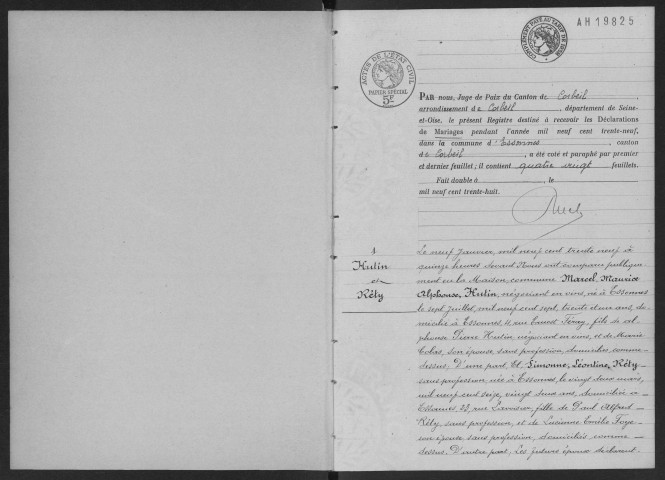 AH19825
COMPLÉMENT PAYÉ AU TARIF DE
ACTES DE L'ÉTAT CIVIL
PAPIER SPÉCIAL
5F
PAR nous, Juge de Paix du Canton de Corbeil,
arrondissement de Corbeil, département de Seine-
et-Oise, le présent Registre destiné à recevoir les Déclarations
de Mariages pendant l'année mil neuf cent trente-neuf,
dans la commune d'Essonnes, canton
de Corbeil, a été coté et paraphé par premier
et dernier feuillet; il contient quatre vingt feuillets.
Fait double à , le
mil neuf cent trente-huit.
1
Hutin
et
Réty
Le neuf Janvier, mil neuf cent trente neuf à
quinze heures devant Nous ont comparu publique-
ment en la Maison commune Marcel, Maurice
Alphonse, Hutin, négociant en vins, né à Essonnes
le sept Juillet, mil neuf cent sept, trente et un ans, do-
micilié à Essonnes, rue Ernest Feray, fils de Al-
phonse Pierre Hutin, négociant en vins, et de Marie
Colas, son épouse, sans profession, domiciliés comme
dessus; D'une part, Et Simonne, Léontine, Réty
sans profession, née à Essonnes, le vingt deux mars,
mil neuf cent seize, vingt deux ans, domiciliée à
Essonnes, 23, rue fille de Paul Alfred
Réty, sans profession, et de Lucienne Emilie Foye
son épouse, sans profession, domiciliés comme
dessus. D'autre part; Les futurs époux déclarent